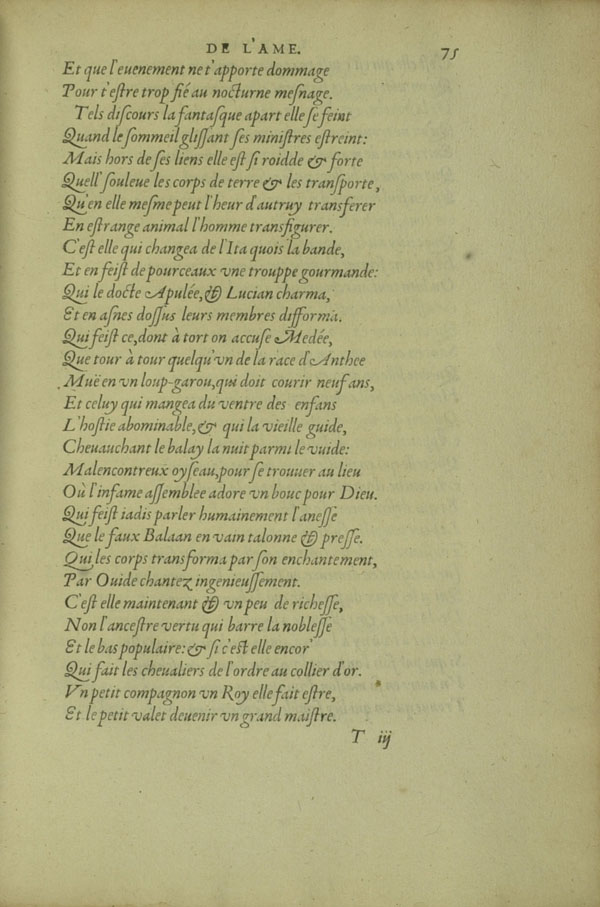 DE L'AME. 75
Et que l'euenement ne t'apporte dommage
Pour t'eſtre trop fié au nocturne meſnage.
Tels diſcours la fantaſque apart elle ſe feint
Quand le ſommeil gliſſant ſes miniſtres eſtreint:
Mais hors de ſes liens elle eſt ſi roidde & forte
Quell' ſouleue les corps de terre & les tranſporte,
Qu'en elle meſme peut l'heur d'autruy transferer
En eſtrange animal l'homme transfigurer.
C'eſt elle qui changea de l'Itaquois la bande,
Et en feiſt de pourceaux vne trouppe gourmande:
Qui le docte Apulée, & Lucian charma,
Et en aſnes doſſus leurs membres difforma.
Qui feiſt ce, dont à tort on accuſe Medée,
Que tour à tour quelqu'vn de la race d'Anthee
Muë en vn loup-garou, qui doit courir neuf ans,
Et celuy qui mangea du ventre des enfans
L'hoſtie abominable, & qui la vieille guide,
Cheuauchant le balay la nuit parmi le vuide:
Malencontreux oyſeau, pour ſe trouuer au lieu
Où l'infame aſſemblee adore vn bouc pour Dieu.
Qui feiſt iadis parler humainement l'aneſſe
Que le faux Balaan en vain talonne & preſſe.
Qui les corps transforma par ſon enchantement,
Par Ouide chantez ingenieuſſement.
C'eſt elle maintenant & vn peu de richeſſe,
Non l'anceſtre vertu qui barre la nobleſſe
Et le bas populaire: & ſi c'eſt elle encor'
Qui fait les cheualiers de l'ordre au collier d'or.
Vn petit compagnon vn Roy elle fait eſtre,
Et le petit valet deuenir vn grand maiſtre.
T iij